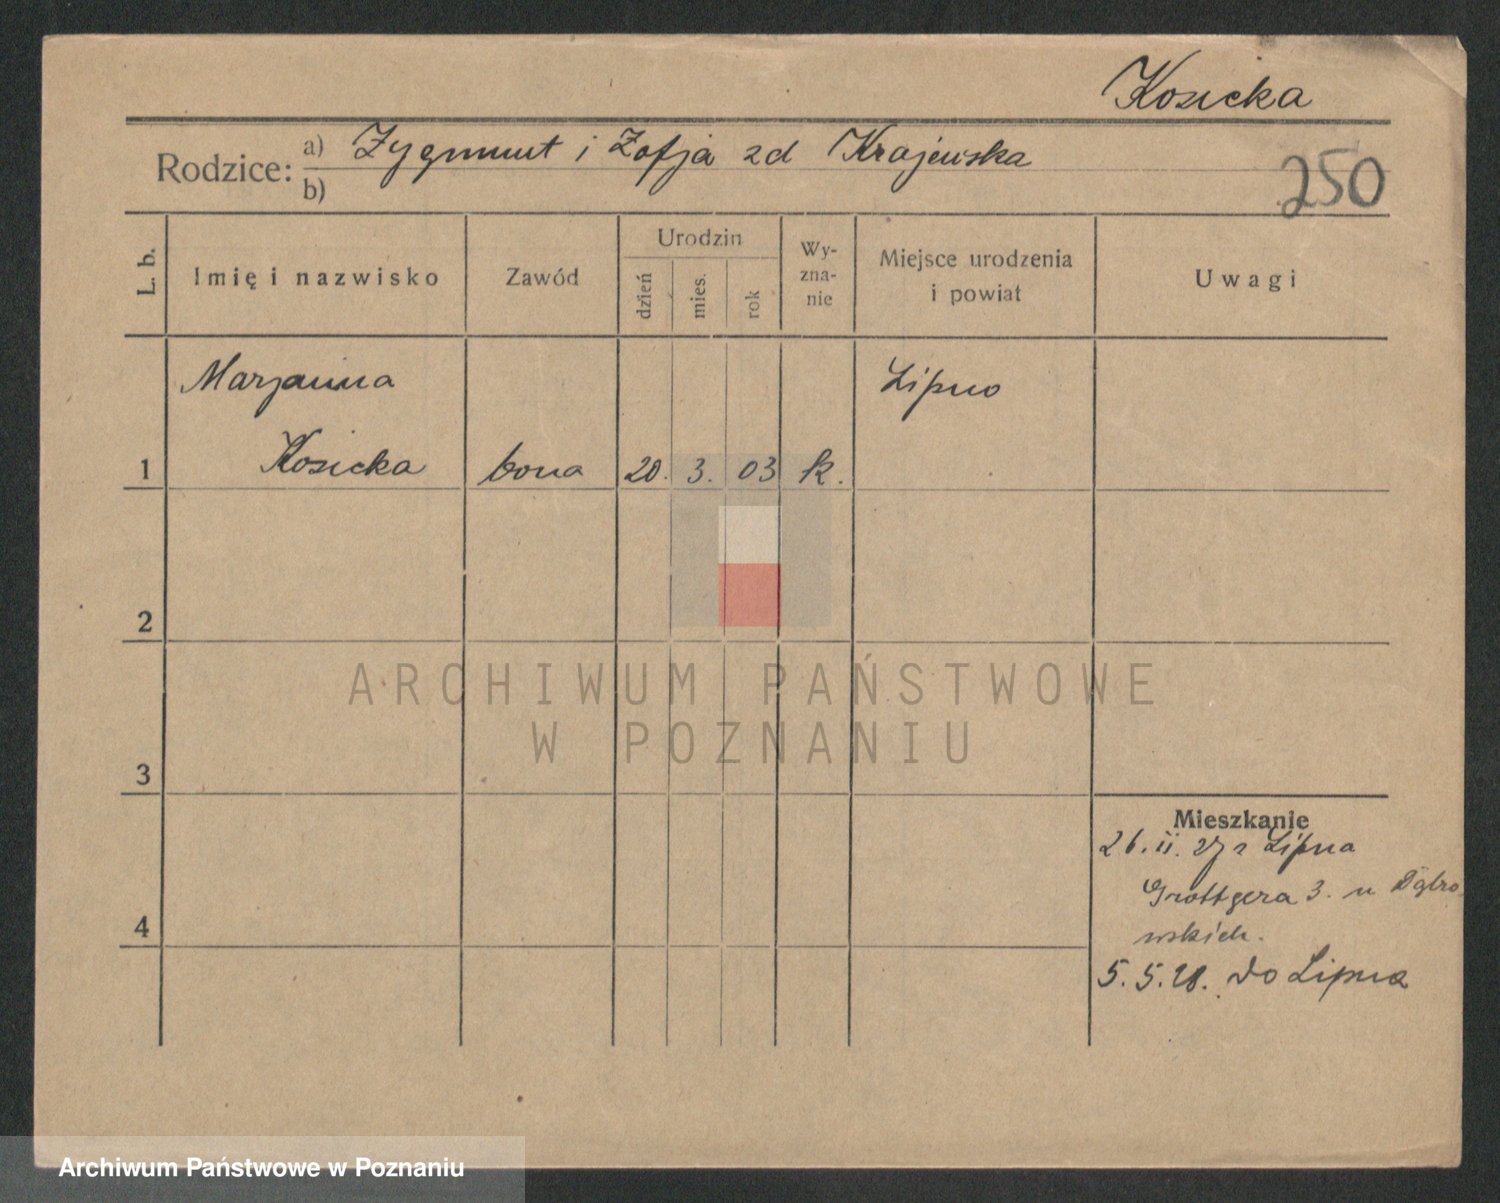 Kosicka
Rodzice: a) Zygmunt i Zofja zd Krajewska
b)
250
L. b.
Imię i nazwisko
Zawód
Urodzin
dzień
mies.
rok
Wy-
zna-
nie
Miejsce urodzenia
i powiat
Uwagi
Marjanna
Lipno
1 Kosicka bona 20. 3. 03 k.
2
3
4
ARCHIWUM PAŃSTWOWE
W POZNANIU
Mieszkanie
26. II. 27 z Lipna
Grottgera 3. u Dąbro
wskich.
5. 5. 28. do Lipna
Archiwum Państwowe w Poznaniu